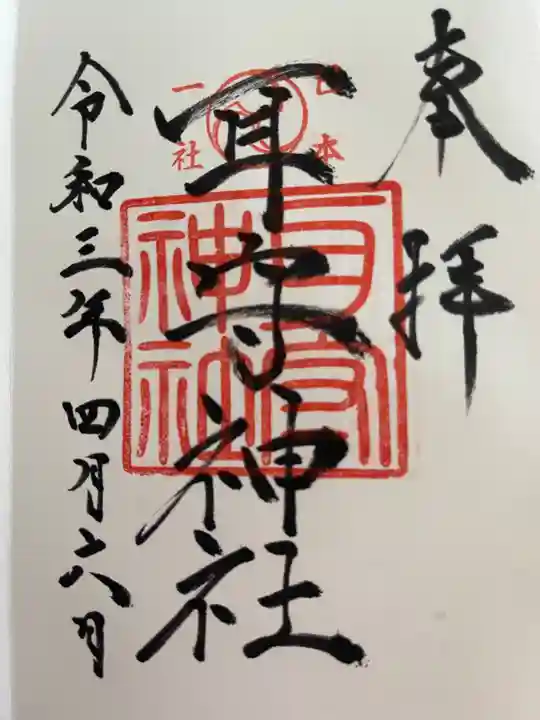 奉拝
日本
一社
耳守神社
耳守神社
令和三年四月六日